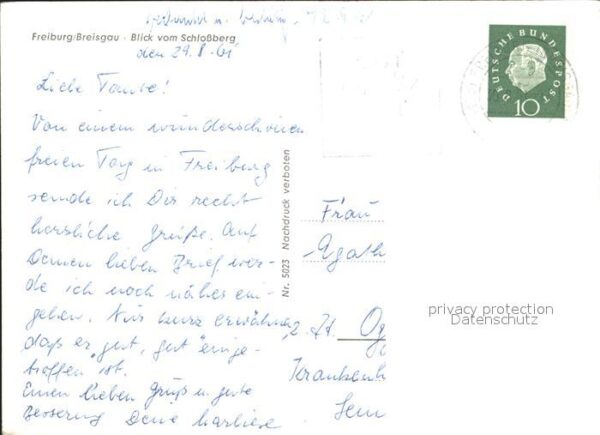 Freiburg/Breisgau · Blick vom Schloßberg
den 29.8.61
Liebe Tante!
Von einem wunderschönen
freien Tag in Freiburg
sende ich Dir recht
herzliche Grüße. Auf
Deinen lieben Brief wer-
de ich noch näher ein-
gehen. Nur kurz erwähne,
daß er gut, gut "einge-
troffen" ist.
Einen lieben Gruß u. gute
Besserung Deine Marliese
Nr. 5023 Nachdruck verboten
DEUTSCHE BUNDESPOST
10
Frau
Agath
z. Zt.
Krankenh
privacy protection
Datenschutz